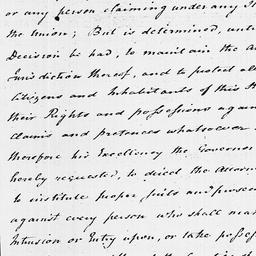 or any person claiming under any
the Union; But is determined, until
Decision be had, to maintain the
Jurisdiction thereof, and to protect all
Citizens and Inhabitants of this
their Rights and possessions again
claims and pretences whatsoever
therefore his Excellency the Governor
hereby requested, to direct the Attorn
to institute proper suits and prosec
against every person who shall
Intrusion or Entry upon, or take posses